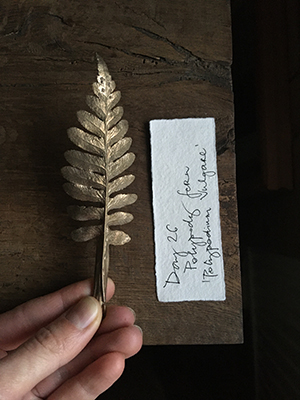 Day 26
Polypody fern
'Polypodium Vulgare'